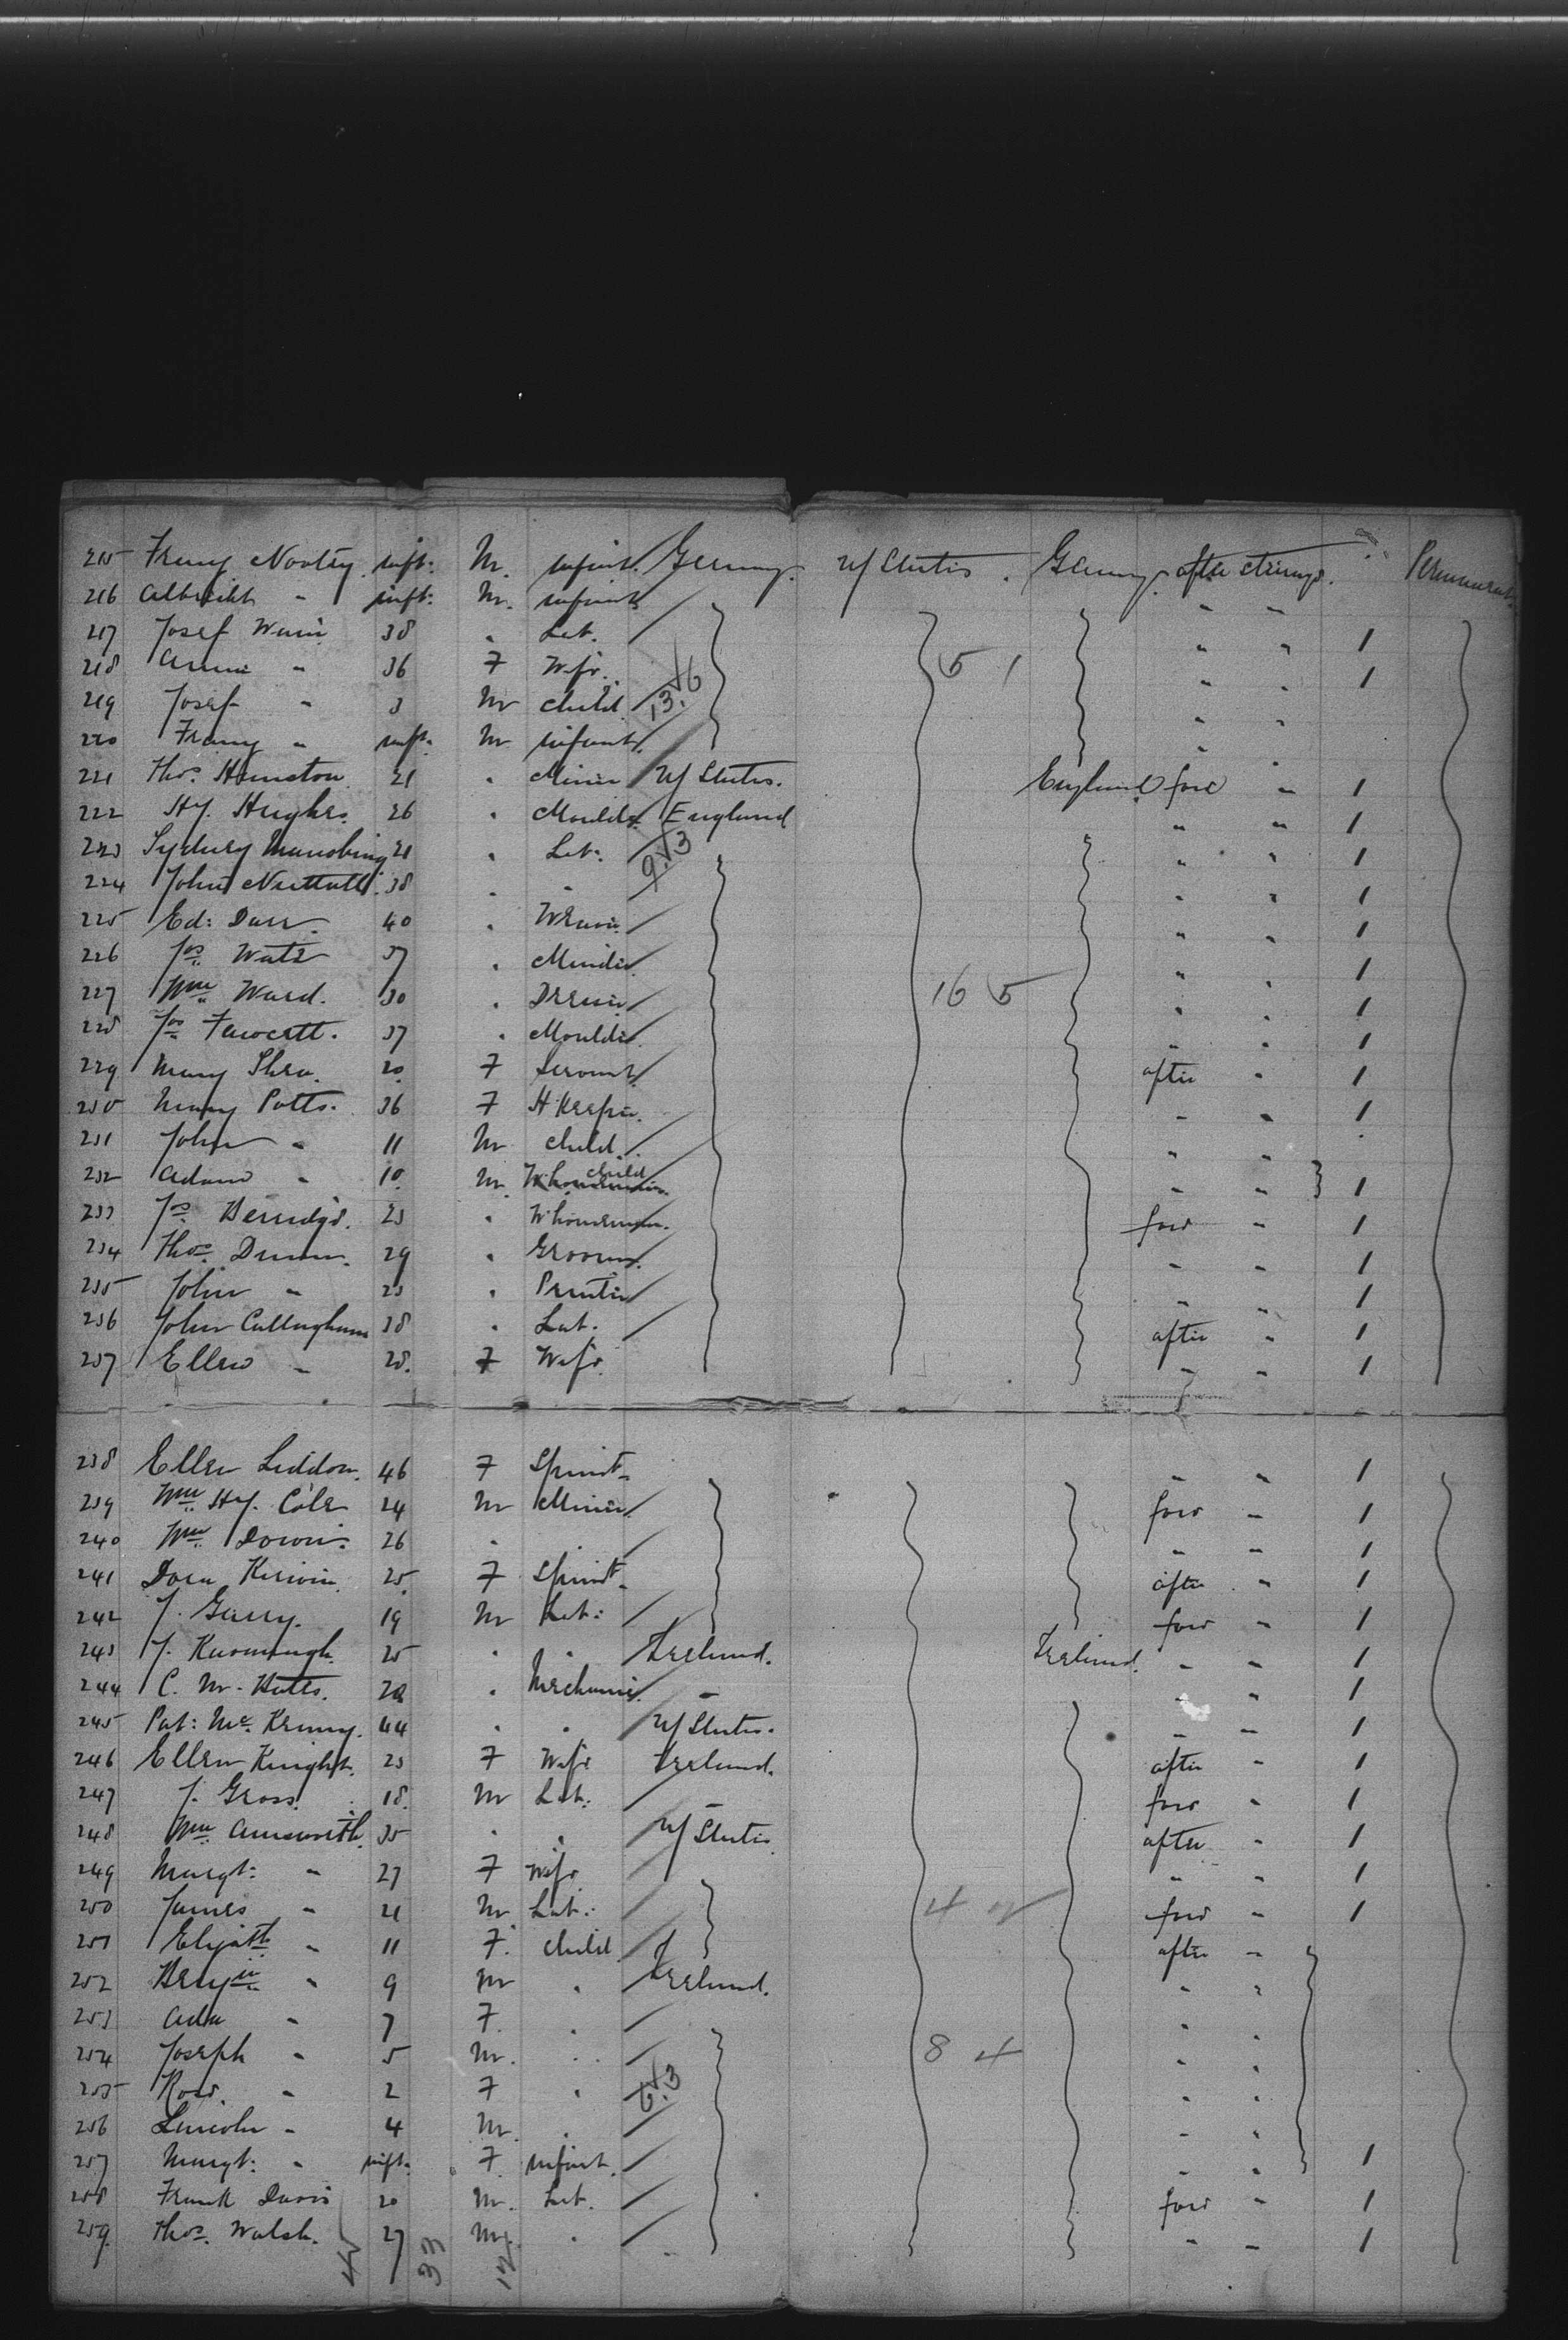 215 Franz Novoty. inft. M. infant. Germany. U/States. Germany. after steerage. Permanent.
216 Albrecht " inft. M. infant. " "
217 Josef 38 " Lab. " " 1
218 " 36 F Wife. 5 1 " " 1
219 Josef " 3 M child 13.6 " "
220 Franz " inft. M infant. "
221 Thos. 21 " Miner U/States. England ford " 1
222 Hy. Hughes. 26 " Moulder England " " 1
223 Sydney 21 " Lab. 9.3 " " 1
224 John Nuttall. 38 " " " " 1
225 Ed: 40 " Weaver " " 1
226 Jos. 37 " " 1
227 Wm. Ward. 30 " 16 5 " " 1
228 Jos. Fawcett. 37 " Moulder. " " 1
229 Mary Shea. 20 F Servant after " 1
230 Mary Potts. 36 F H.Keeper. " " 1
231 John " 11 M child. " "
232 Adam " 10 M. child " " 1
233 Jos. 23 " W'houseman. ford " 1
234 Thos. 29 " Groom. " " 1
235 John " 23 " Printer " " 1
236 John Callaghan 38 " Lab. after " 1
237 Ellen " 28. F Wife. " " 1
238 Ellen Liddon. 46 F Spinst. " " 1
239 Wm. Hy. Cole 24 M Miner. ford " 1
240 Wm. 26 " " " " 1
241 Dora Kirwin. 25 F Spinst. after " 1
242 J. Garry. 19 M Lab. ford " 1
243 J. Kavanagh. 25 " " Ireland. Ireland. " " 1
244 C. M. 28 " Mechanic. " " " 1
245 Pat: Mc. 44 " " U/States. " " 1
246 Ellen Knight. 23 F Wife Ireland. after " 1
247 J. Gross. 18. M Lab. " ford " 1
248 Wm. Ainsworth. 35 " " U/States. after " 1
249 Margt. " 27 F Wife " " 1
250 James " 21 M Lab. 4 2 ford " 1
251 Elizabth " 11 F. child after "
252 Benjn. " 9 M " Ireland. " "
253 Ada " 7 F. " " "
254 Joseph " 5 M. " 8 4 " "
255 Rose. " 2 F " 6.3 " "
256 Lincoln " 4 M. " " "
257 Margt. " inft. F infant. " " 1
258 Frank Davis 20 M. Lab. ford " 1
259. Thos. Walsh. 27 M. " " " 1
45 33 12